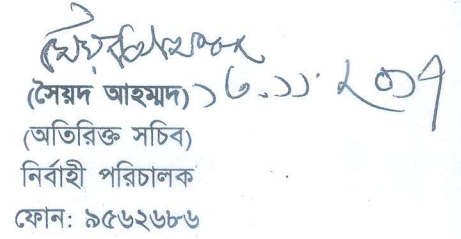 (সৈয়দ আহম্মদ) ১৬.১১.২০১৭
(অতিরিক্ত সচিব)
নির্বাহী পরিচালক
ফোন: ৯৫৬২৬৮৬